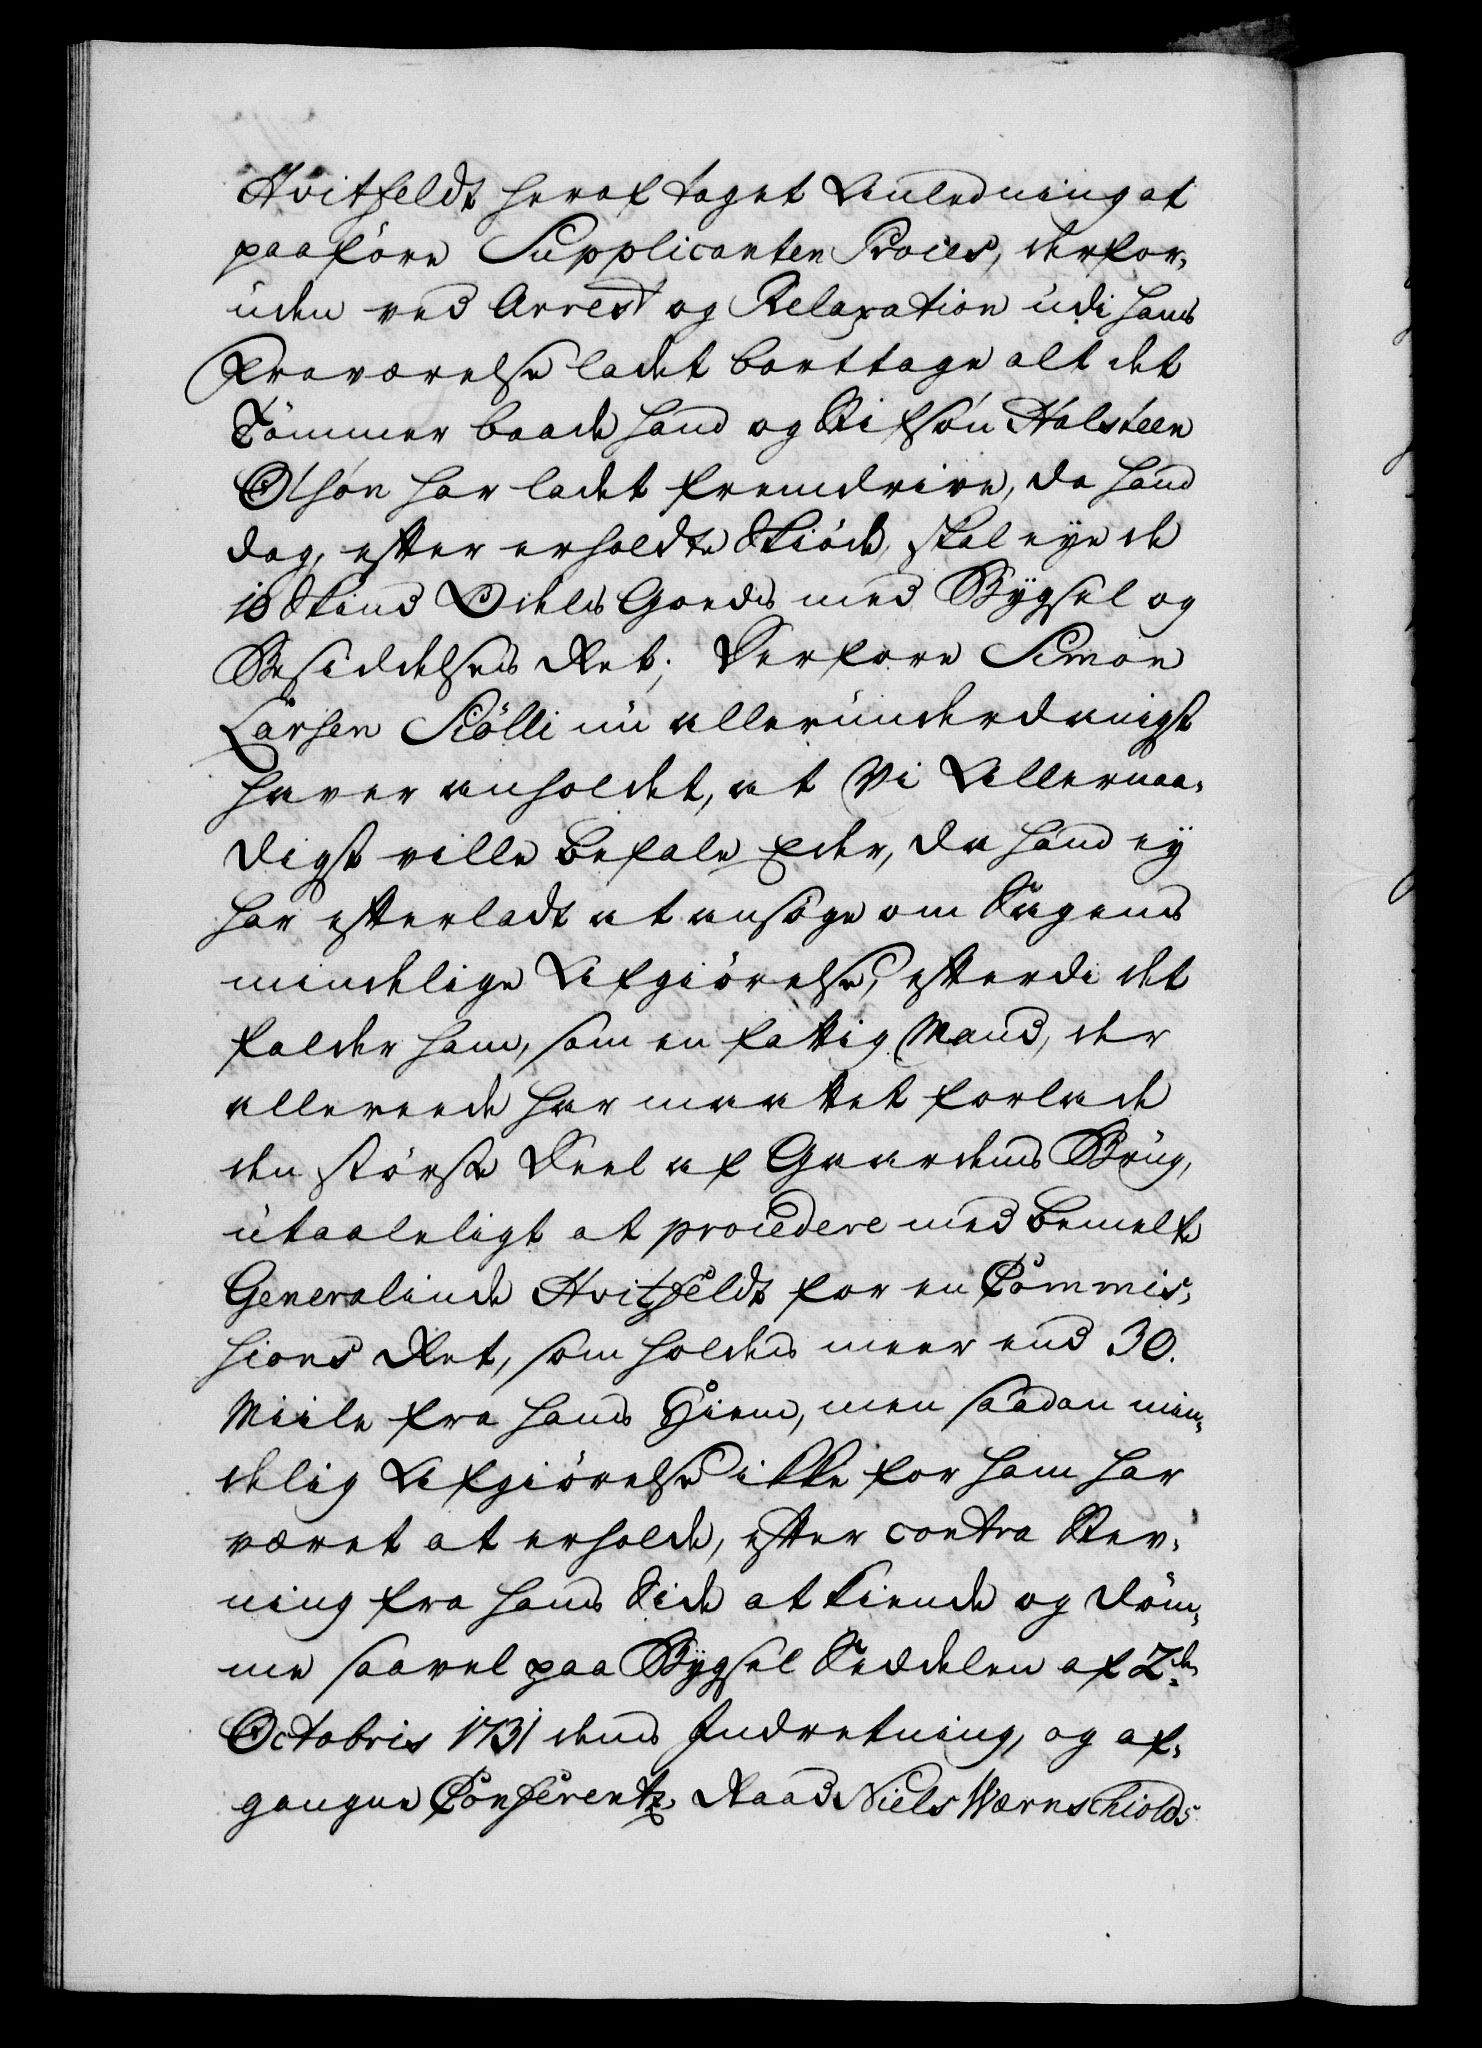 Hvitfeldt heraf taget Anledning at
paaföre Supplicanten Proces, derfor¬
uden ved Arrest og Relaxation udi hans
Fraværelse ladet borttage alt det
Tömmer baade hand og Stifsön Halsteen
Olsön har ladet fremdrive, da hand
dog, efter erholdte Skiöde, skal eye de
10 Skind Odels Goeds med Bÿgsel og
Besiddelses Ret; Derfore Simon
Larsen Schölli nu allerunderdanigst
haver anholdet, at Vi Allernaa¬
digst ville befale Eder, da hand ey
har efterladt at ansöge om Sagens
mindelige Afgiörelse, efterdi det
falder ham, som en fattig Mand, der
allereede har maattet forlade
den störste Deel af Gaardens Brug,
utaaleligt at procedere med bemelte
Generalinde Hvitfeldt for en Commis¬
sions Ret, som holdes meer end 30.
Miile fra hans Hiem, men saadan min¬
delig Afgiörelse ikke for ham har
været at erholde, efter contra Stev¬
ning fra hans Side at kiende og döm¬
me saavel paa Bÿgsel Seddelen af 2den
Octobris 1731 dens Indretning, og af¬
gangne Conferentz Raad Niels Wærnschiolds